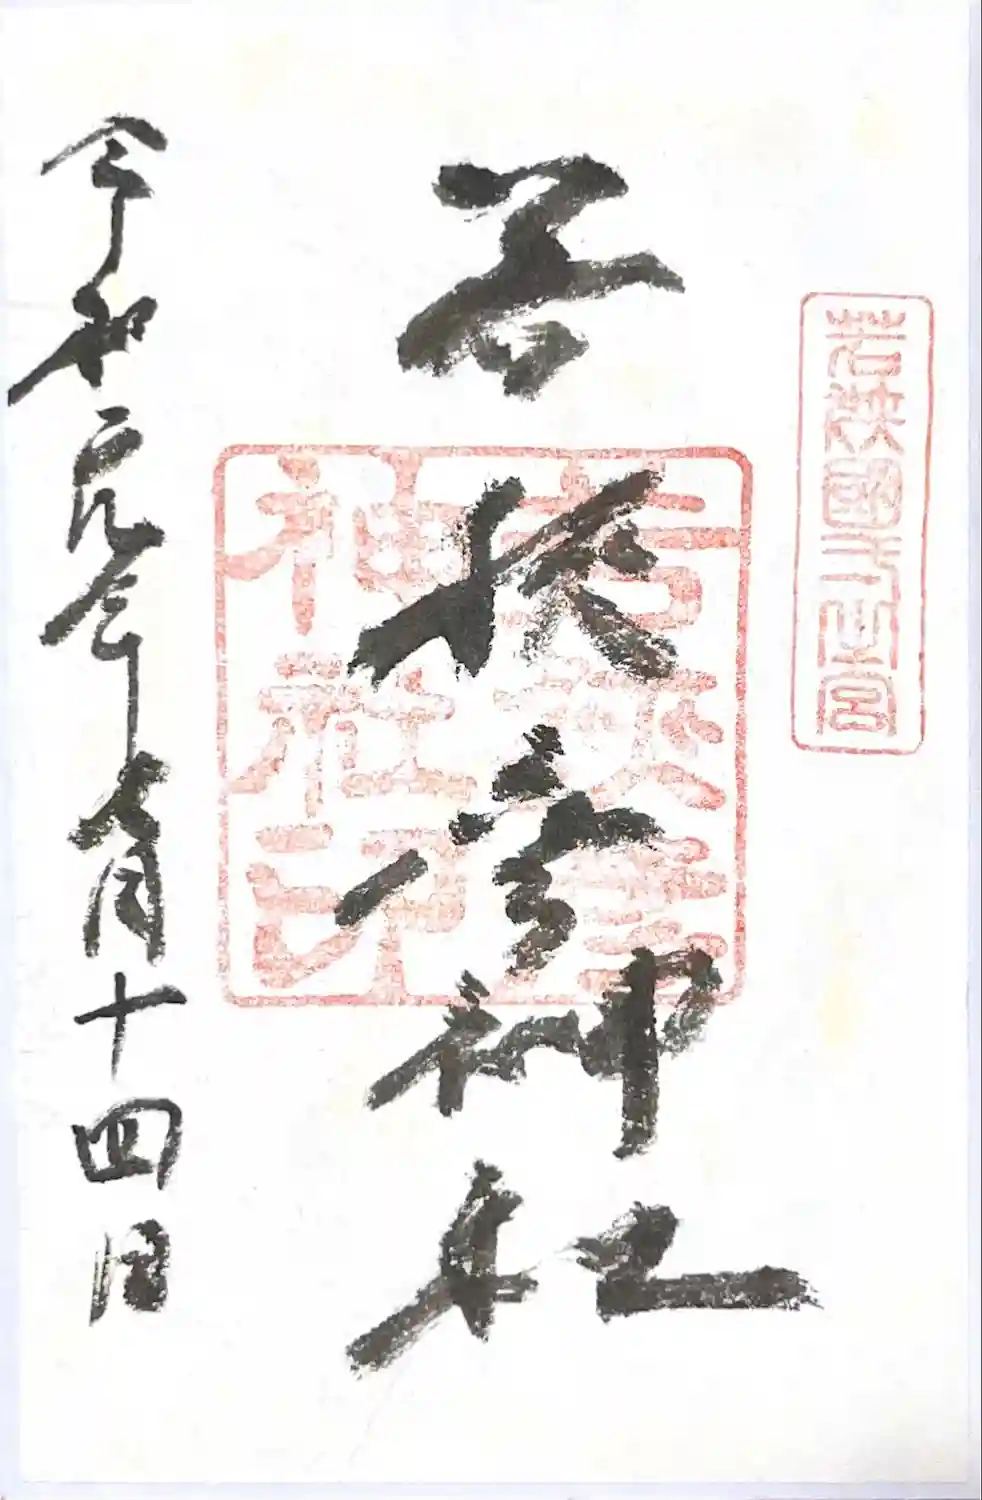 若狹國一之宮
若狭彦神社
若狹彦
神社印
令和元年七月十四日